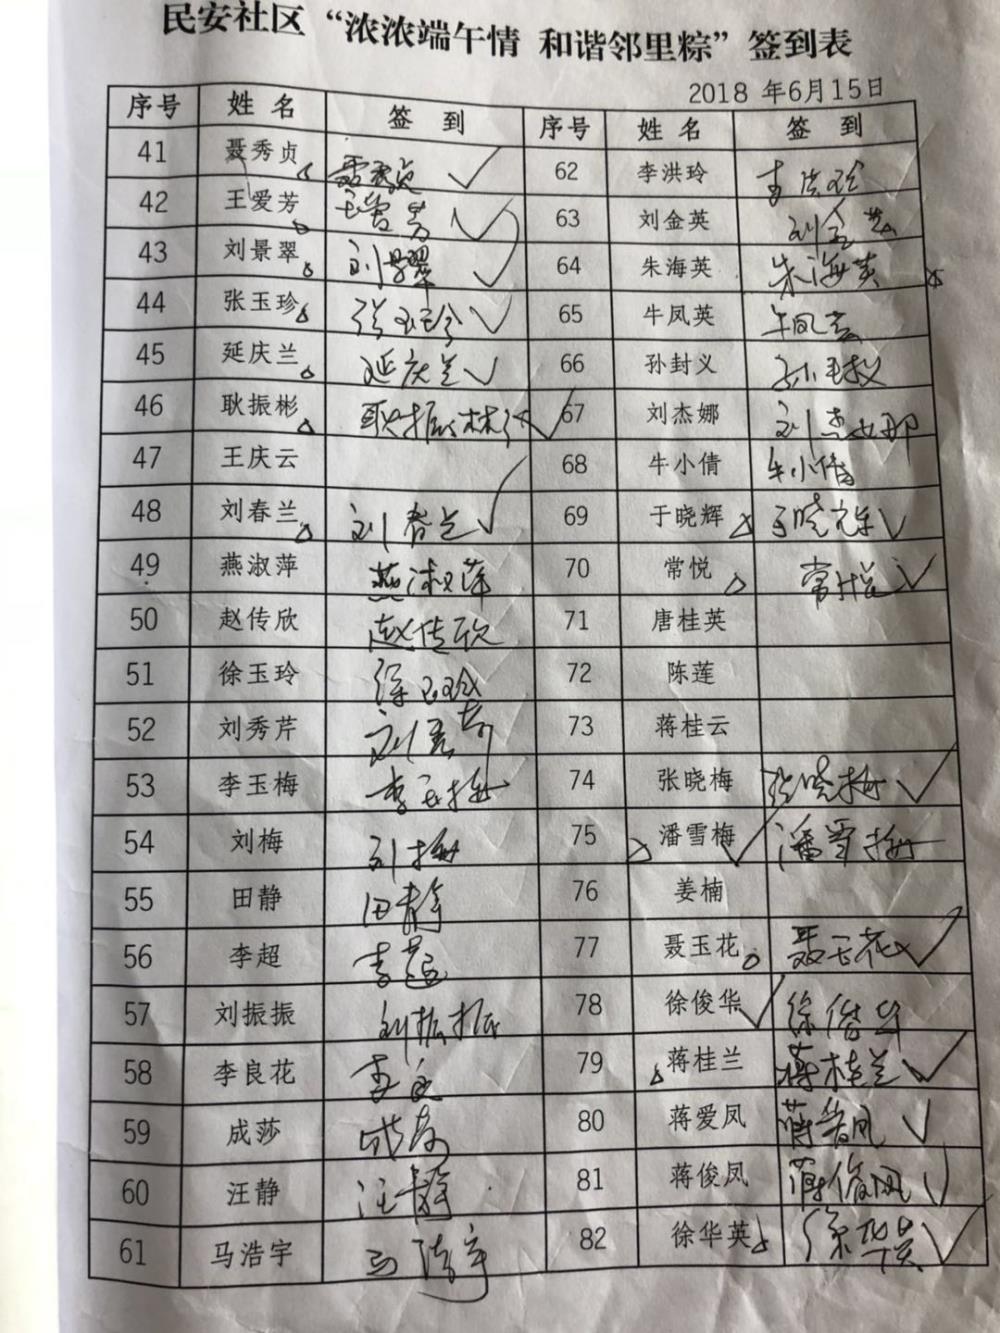 民安社区“浓浓端午情 和谐邻里粽”签到表
2018 年6月15日
序号 姓名 签 到 序号 姓名 签 到
41 聂秀贞 62 李洪玲 李洪玲
42 王爱芳 王爱芳 63 刘金英 刘金英
43 刘景翠 刘景翠 64 朱海英 朱海英
44 张玉珍 张玉珍 65 牛凤英 牛凤英
45 延庆兰 延庆兰 66 孙封义
46 耿振彬 67 刘杰娜 刘杰娜
47 王庆云 68 牛小倩 牛小倩
48 刘春兰 刘春兰 69 于晓辉 于晓辉
49 燕淑萍 燕淑萍 70 常悦 常悦
50 赵传欣 赵传欣 71 唐桂英
51 徐玉玲 徐玉玲 72 陈莲
52 刘秀芹 刘秀芹 73 蒋桂云
53 李玉梅 李玉梅 74 张晓梅 张晓梅
54 刘梅 刘梅 75 潘雪梅 潘雪梅
55 田静 田静 76 姜楠
56 李超 李超 77 聂玉花 聂玉花
57 刘振振 刘振振 78 徐俊华 徐俊华
58 李良花 79 蒋桂兰 蒋桂兰
59 成莎 成莎 80 蒋爱凤 蒋爱凤
60 汪静 汪静 81 蒋俊凤 蒋俊凤
61 马浩宇 马浩宇 82 徐华英 徐华英